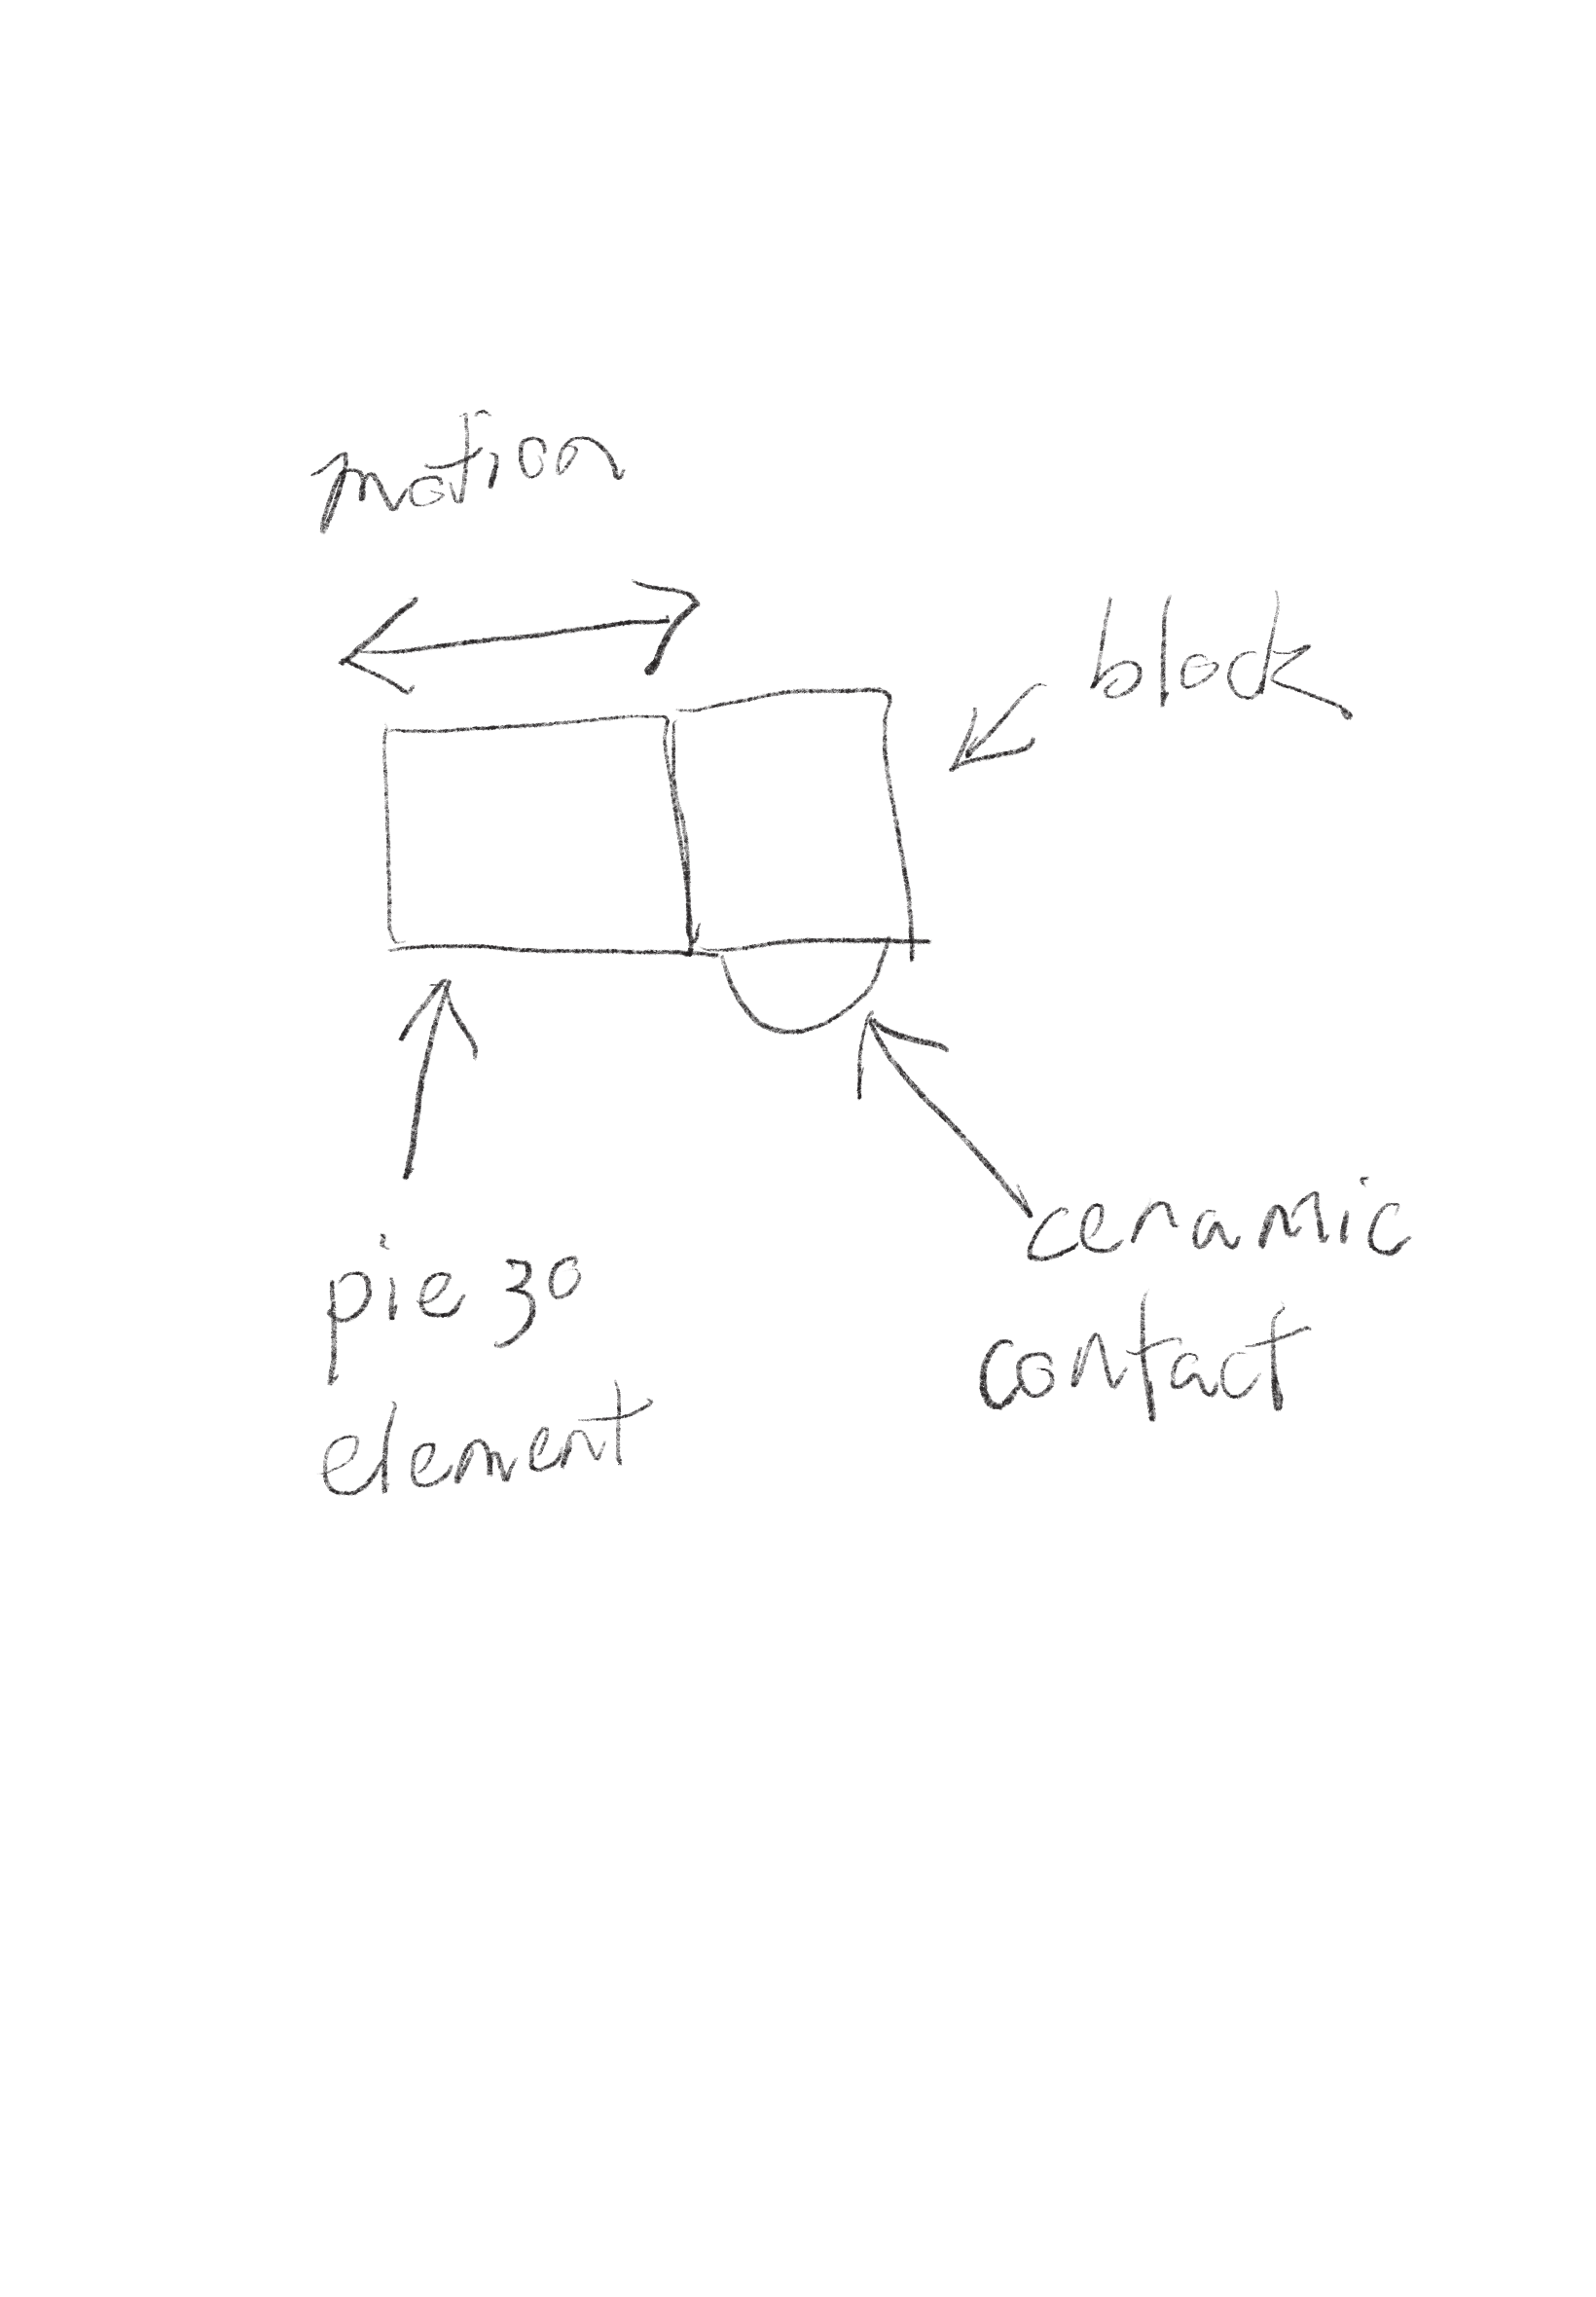 motion
block
piezo
element
ceramic
contact